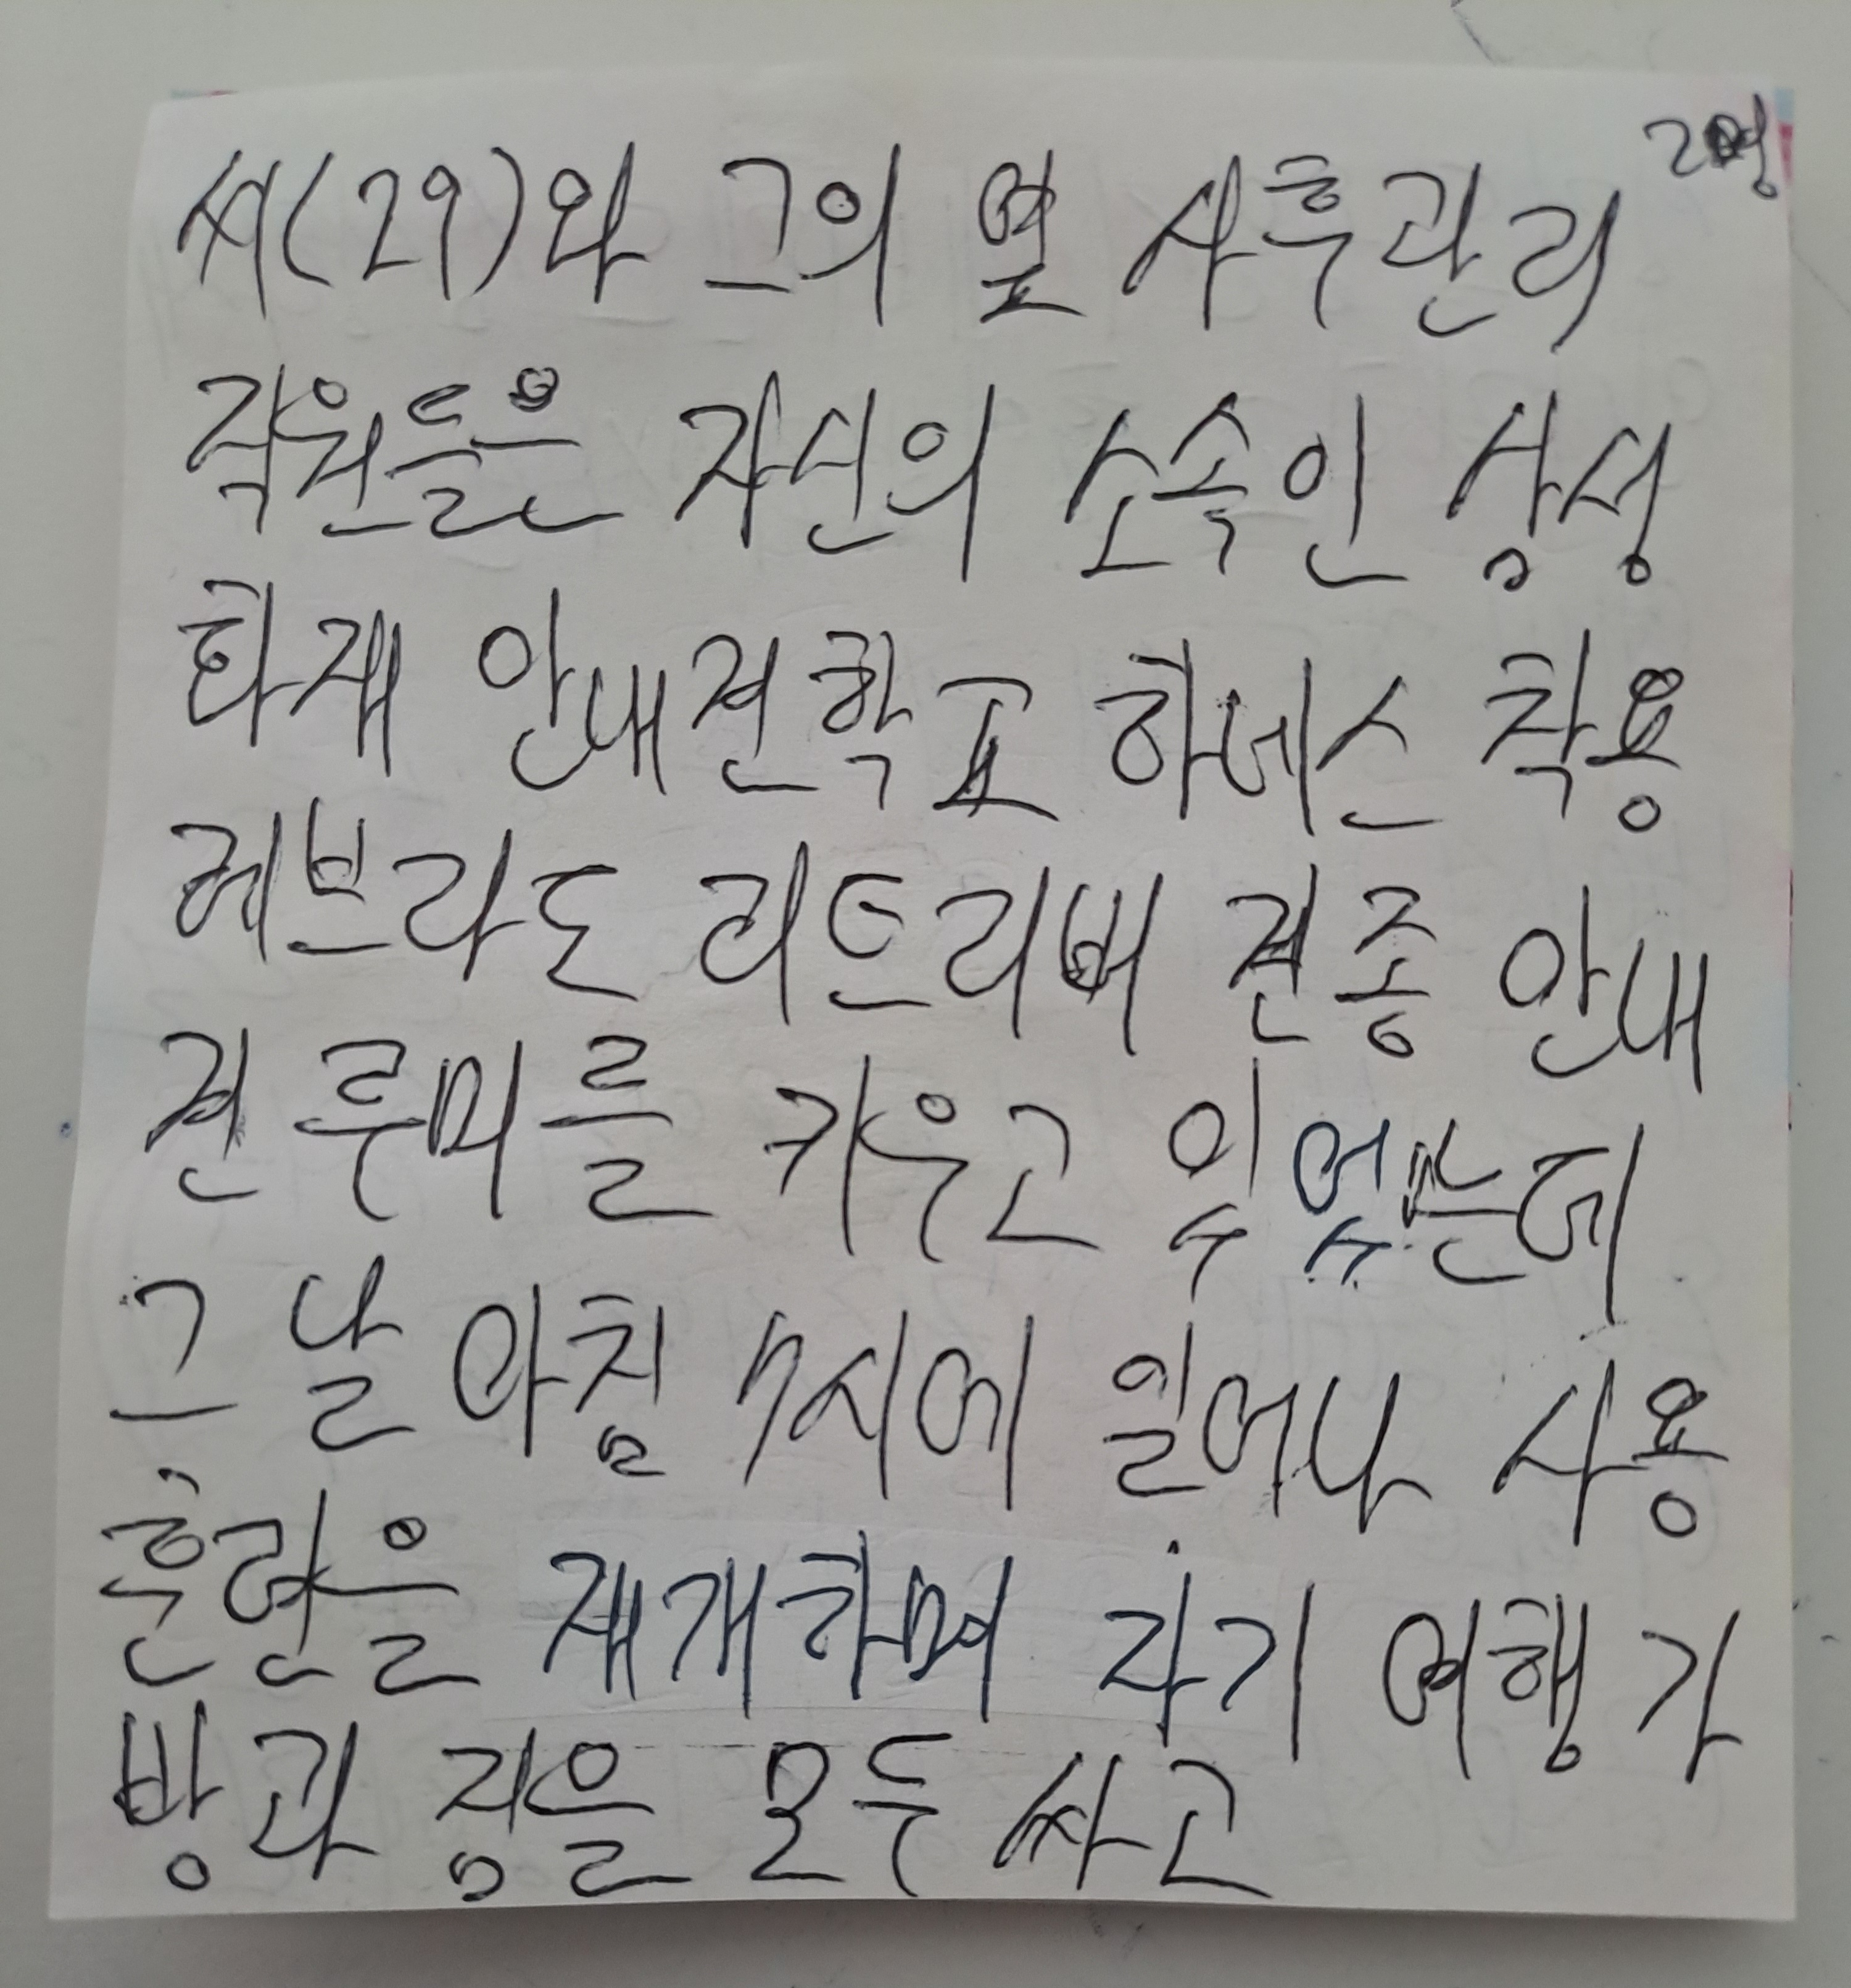 2명
씨(29)와 그의 옆 사후관리
직원들은 자신의 소속인 삼성
화재 안내견학교 하네스 착용
레브라도 리트리버 견종 안내
견 루미를 키우고 있었는데
그 날 아침 7시에 일어나 사용
훈련을 재개하며 각기 여행 가
방과 짐을 모두 싸고